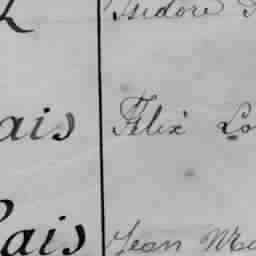 Isidore
ais Felix Lo
ais Jean Ma